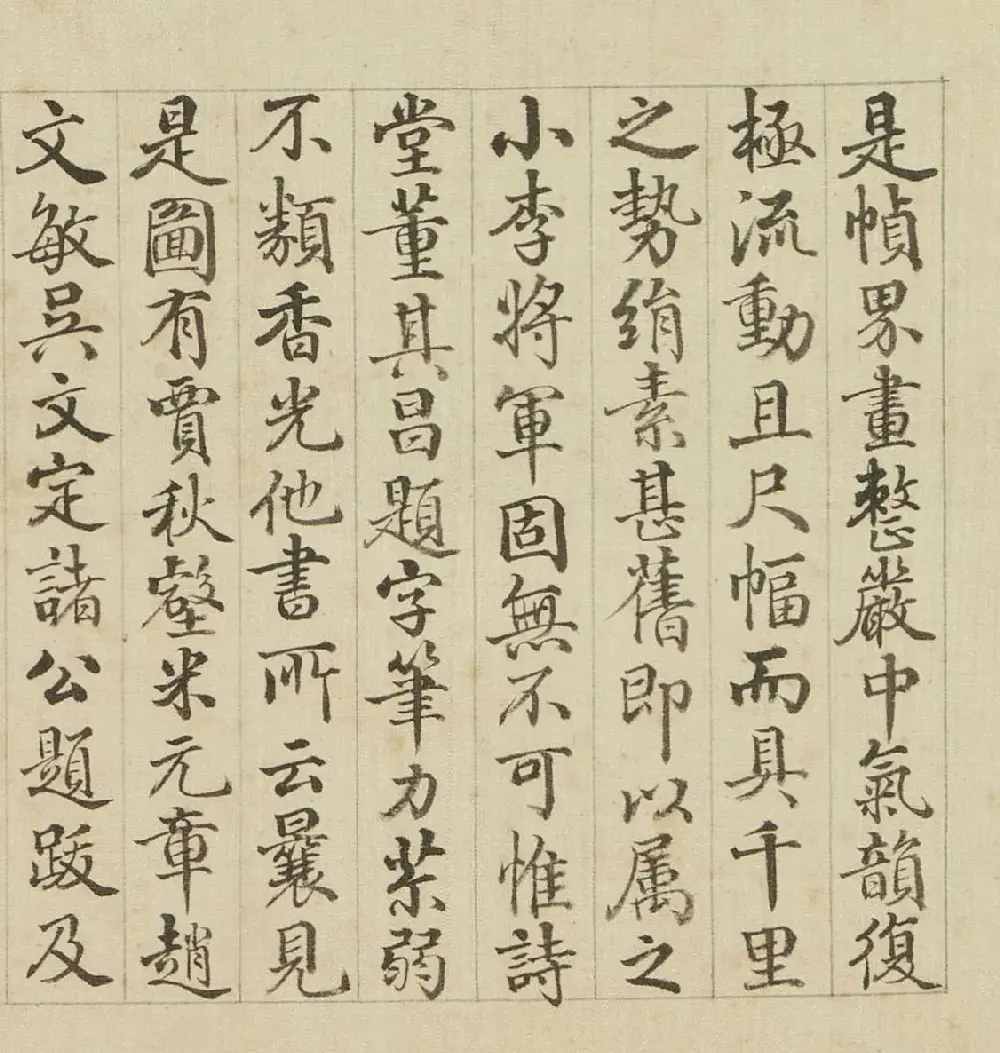 是幀界畫整嚴中氣韻復
極流動且尺幅而具千里
之勢絹素甚舊即以属之
小李將軍固無不可惟詩
堂董其昌題字筆力茶弱
不類香光他書所云曩見
是圖有賈秋壑米元章趙
文敏吳文定諸公題跋及